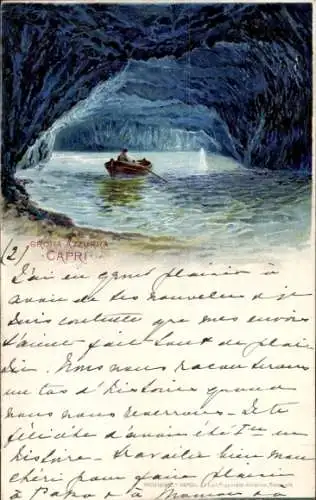 GROTTA AZZURRA
CAPRI
(2)
J'ai eu grand plaisir à
avoir de tes nouvelles et je
suis contente que mes envois
t'aient fait tant de plai
sir. Nous nous raconterons
un tas d'histoires quand
nous nous reverrons. Je te
félicite d'avoir été 1er en
Histoire. Travaille bien mon
chéri pour faire plaisir
à Papa et à Maman